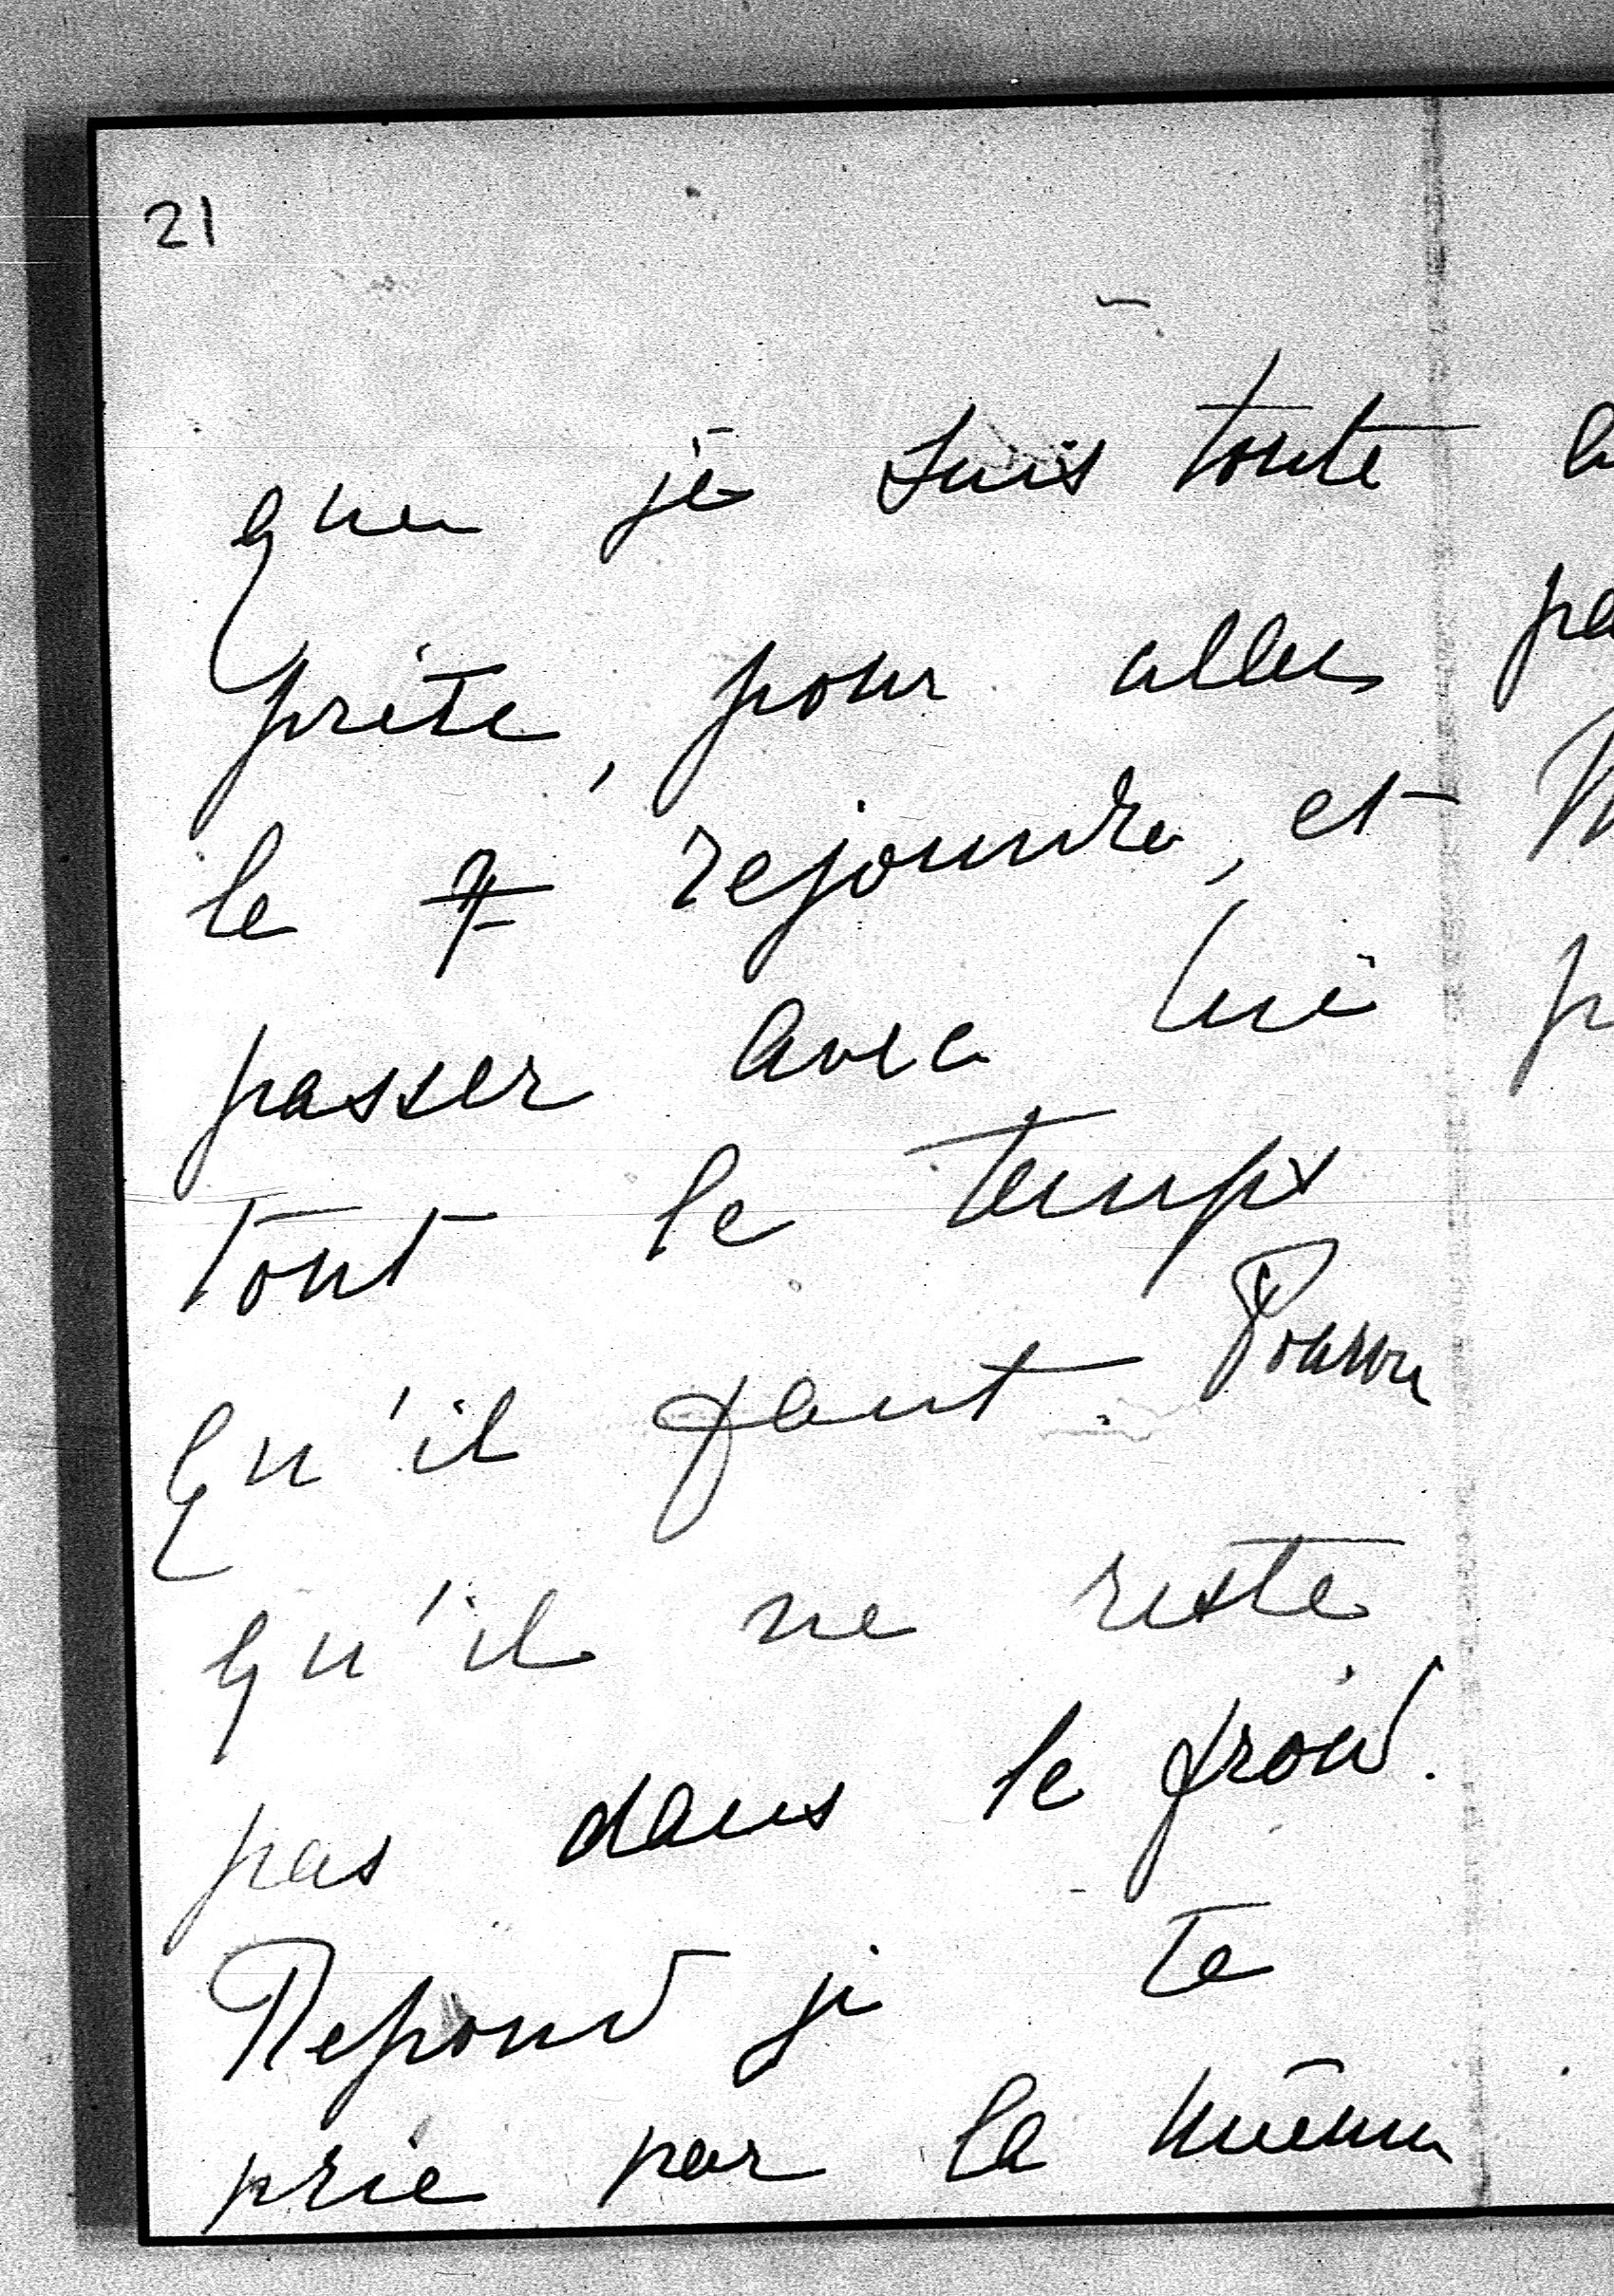 21
que je suis toute
prête, pour aller
le rejoindre, et
passer avec lui
tout le temps
qu'il faut. Pourvu
qu'il ne reste
pas dans le froid.
Repond je te
prie par la même